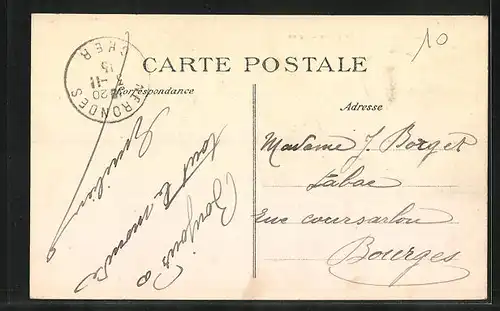 10
NERONDES
CHER
20
-11
15
CARTE POSTALE
Correspondance
Adresse
Bonjour a
tout le monde
Emilien
Madame J. Borget
Tabac
Rue coursarlon
Bourges